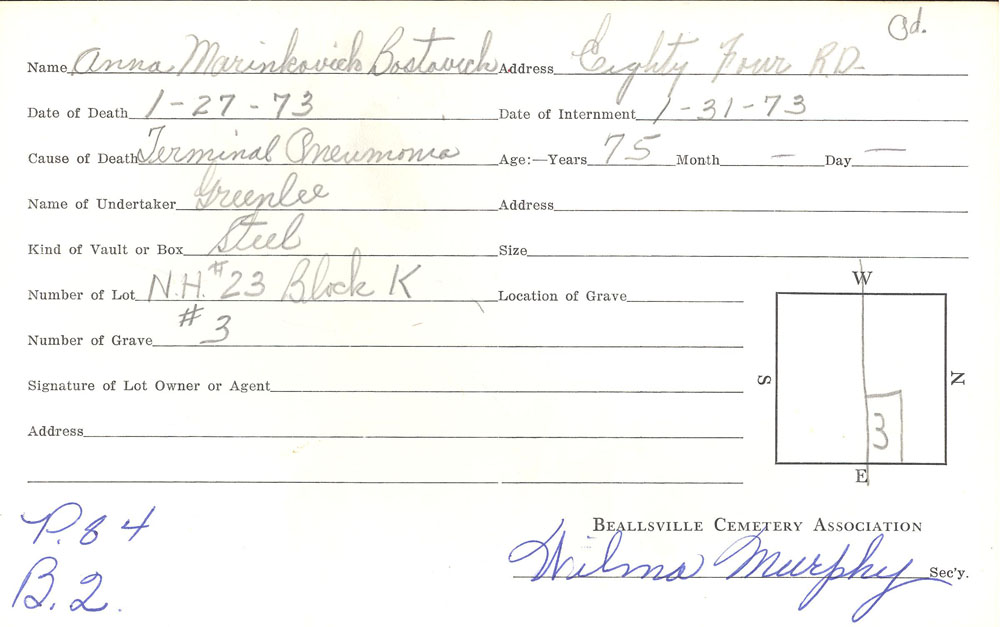 Pd.
Name Anna Marinkovich Bostovich Address Eighty Four R.D.
Date of Death 1-27-73 Date of Internment 1-31-73
Cause of Death Terminal Pneumonia Age:—Years 75 Month — Day —
Name of Undertaker Greenlee Address
Kind of Vault or Box Steel Size
Number of Lot N.H. #23 Block K Location of Grave
Number of Grave #3
Signature of Lot Owner or Agent
Address
W
S N
3
E
P. 84
B. 2.
Beallsville Cemetery Association
Wilma Murphy Sec'y.